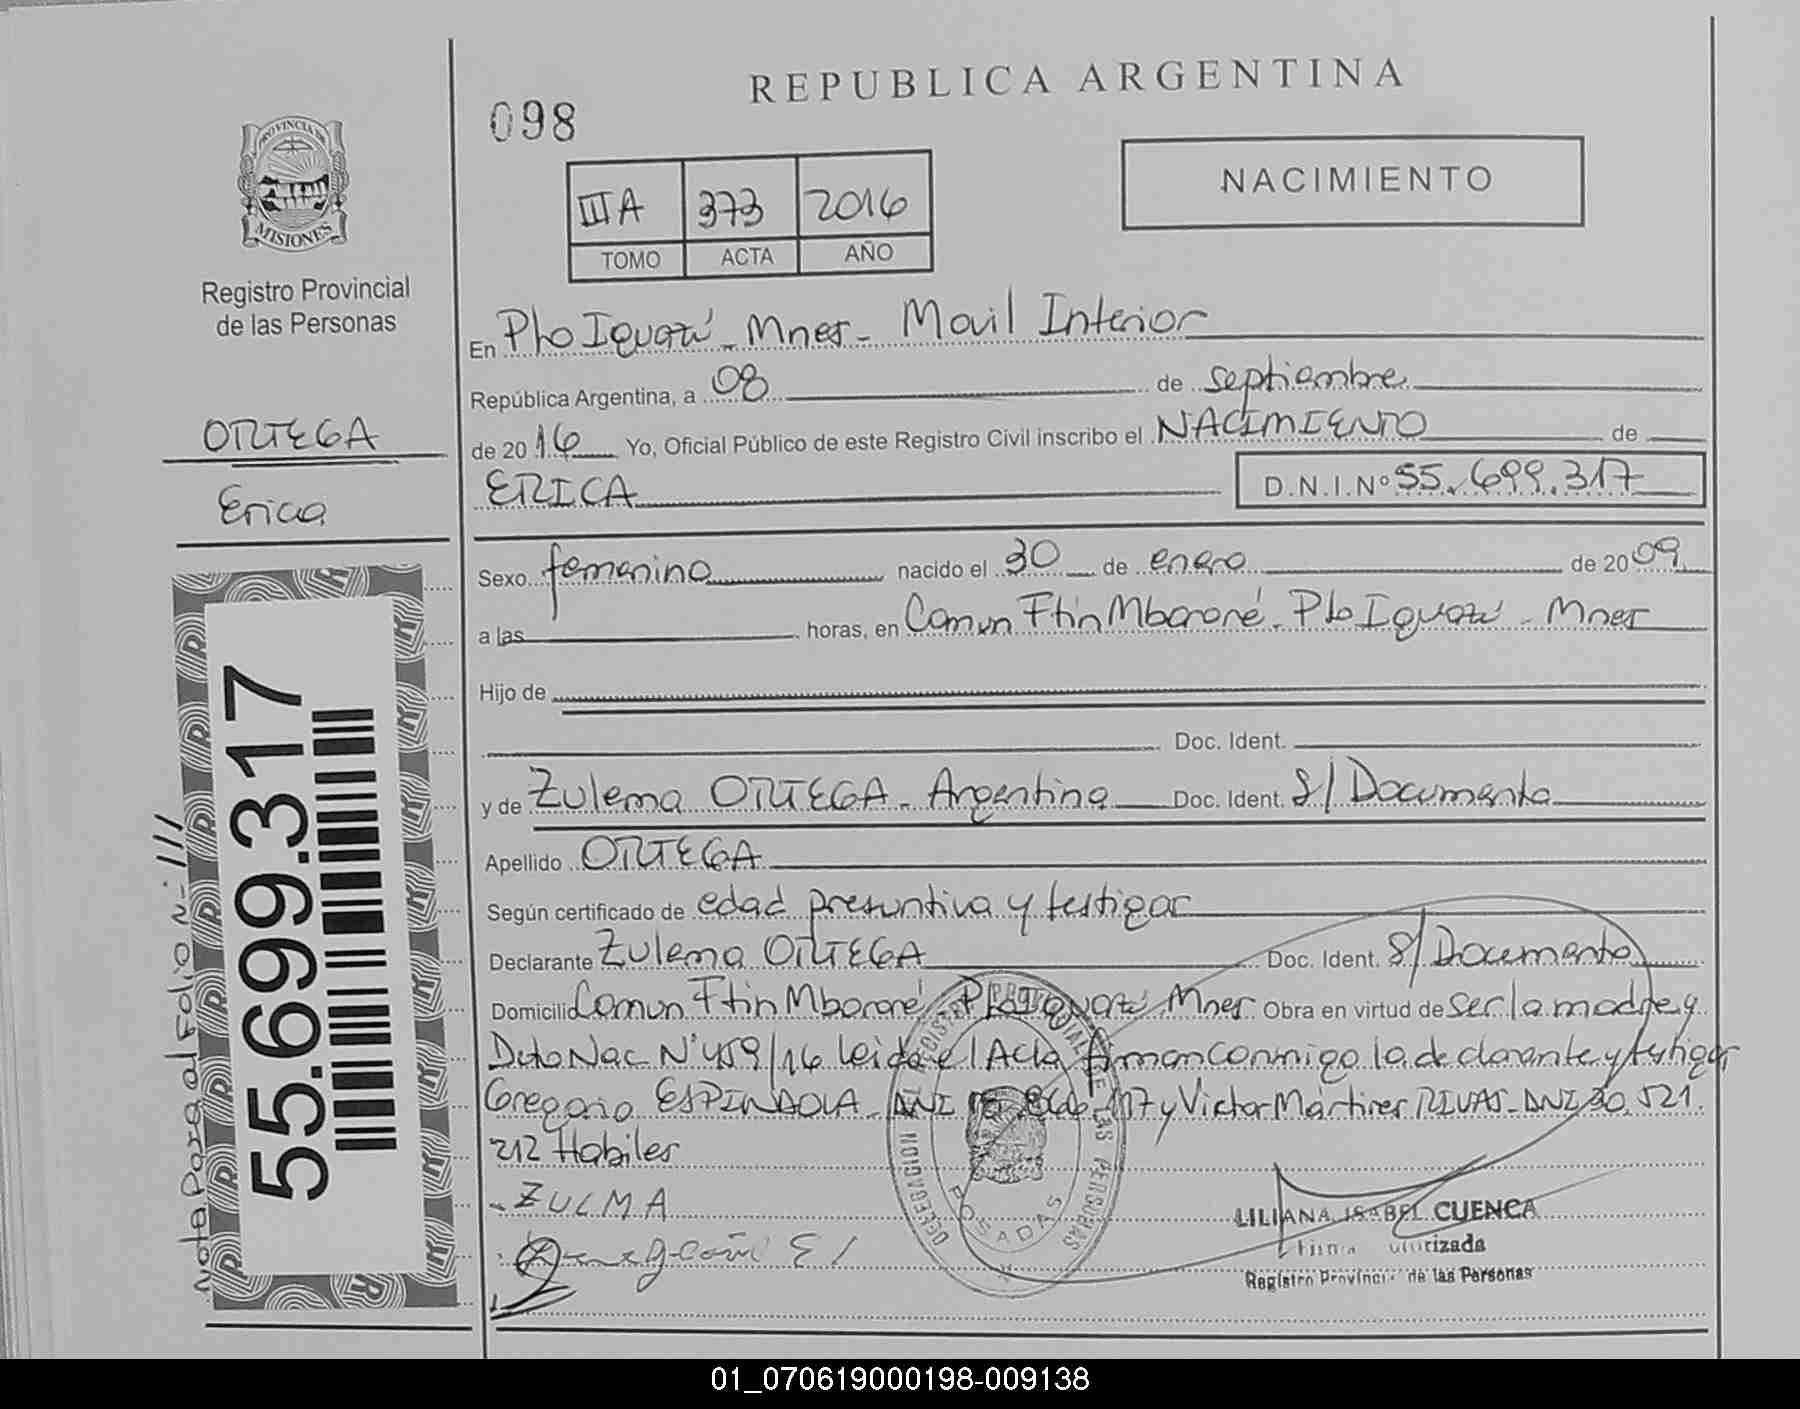 REPUBLICA ARGENTINA
098
NACIMIENTO
PROVINCIA DE
MISIONES
IIIA 373 2016
TOMO ACTA AÑO
Registro Provincial
de las Personas
En Pto Iguazú - Mnes - Movil Interior
República Argentina, a 08 de septiembre
de 2016 Yo, Oficial Público de este Registro Civil inscribo el NACIMIENTO de
ORTEGA
Erica
ERICA D.N.I.Nº 55.699.317
Sexo femenino nacido el 30 de enero de 2009
a las horas, en Comun Ftin Mbororé - Pto Iguazú - Mnes
Hijo de
Doc. Ident.
y de Zulema ORTEGA - Argentina Doc. Ident. S/ Documento
Apellido ORTEGA
Según certificado de edad presuntiva y testigos
Declarante Zulema ORTEGA Doc. Ident. S/ Documento
Domicilio Comun Ftin Mbororé - Pto Iguazú Mnes Obra en virtud de ser la madre y
Dcto Nac Nº 459/16 leida el Acta firman conmigo la declarante y testigos
Gregorio ESPINDOLA - DNI y Victor Martires RIVAS - DNI 30.521.
212 Habiles
- ZULMA
LILIANA ISABEL CUENCA
Firma autorizada
Registro Provincial de las Personas
POSADAS
55.699.317
Nota Pasa al Folio N- ///
01_070619000198-009138